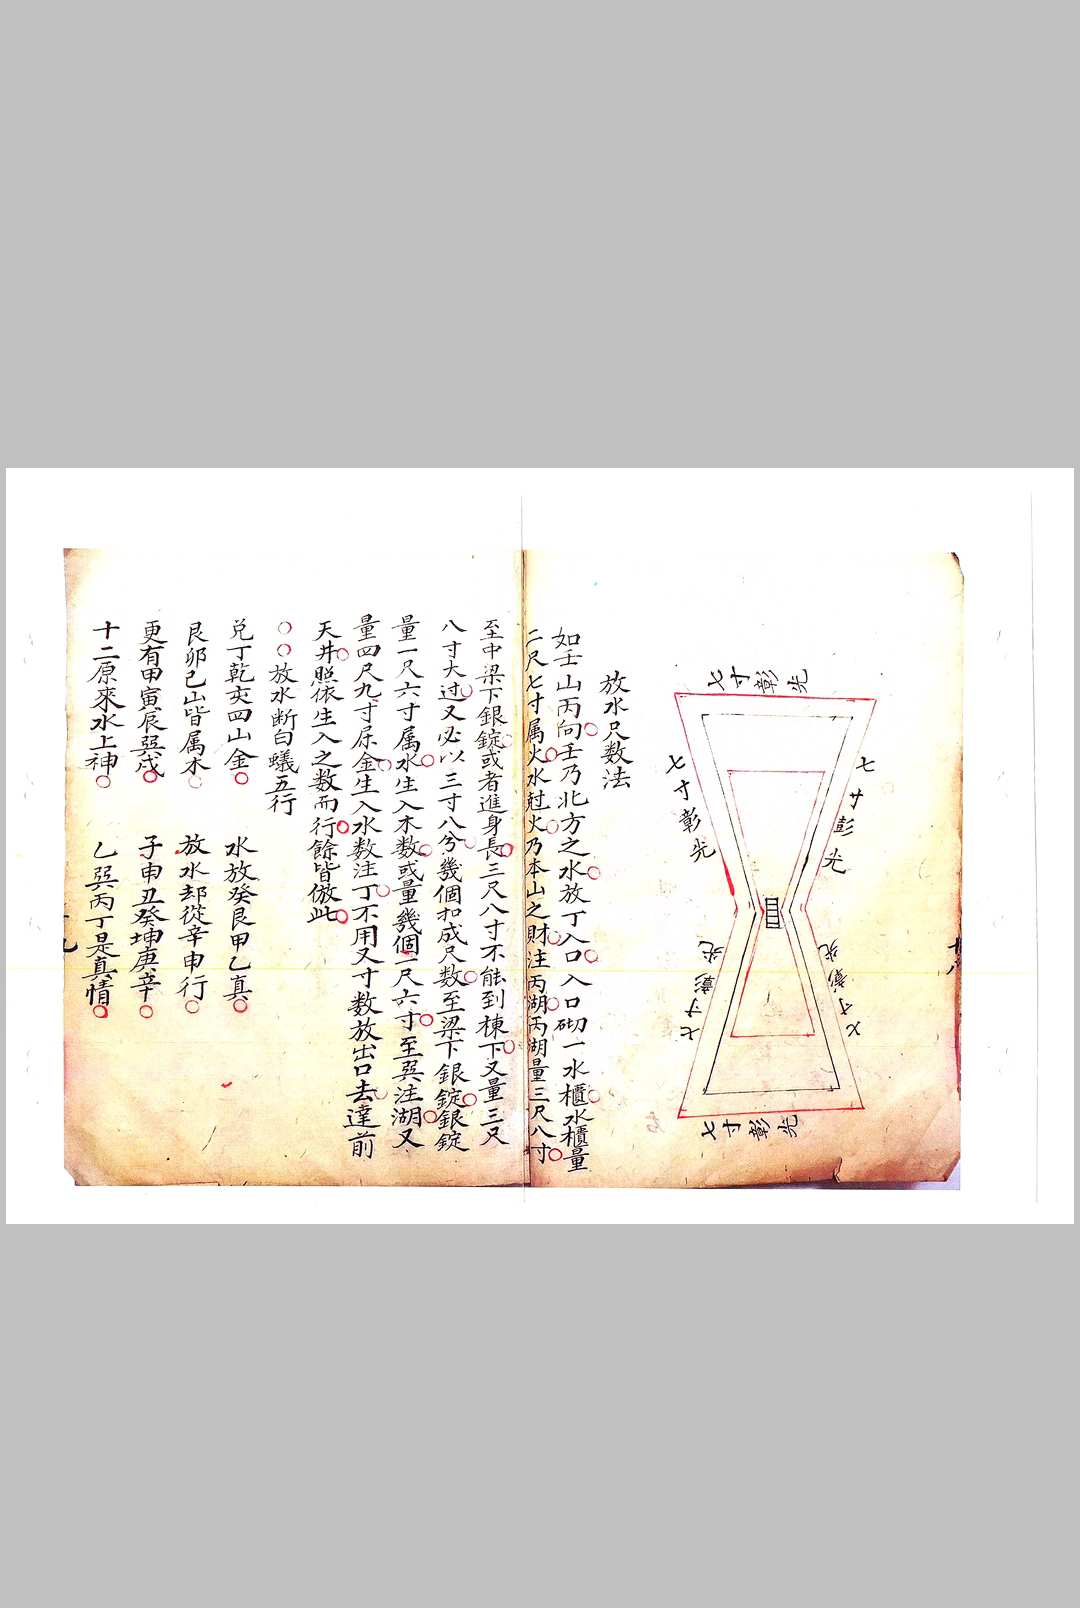 七寸彰光
七寸彭光
七寸彰光
七寸彰光
七寸彰光
七寸彰光
放水尺数法
如壬山丙向壬乃北方之水放丁入口入口砌一水櫃水櫃量
二尺七寸属火水尅火乃本山之財注丙湖丙湖量三尺八寸
至中梁下銀錠或者進身長三尺八寸不能到棟下又量三尺
八寸大过又必以三寸八兮幾個扣成尺数至梁下銀錠銀錠
量一尺六寸属水生入木数或量幾個一尺六寸至巽注湖又
量四尺九寸属金生入水数注丁不用又寸数放出口去達前
天井照依生入之数而行餘皆倣此
○○放水断白蟻五行
兑丁乾亥四山金 水放癸艮甲乙真
艮卯巳山皆属木 放水却從辛申行
更有甲寅辰巽戌 子申丑癸坤庚辛
十二原來水上神 乙巽丙丁是真情